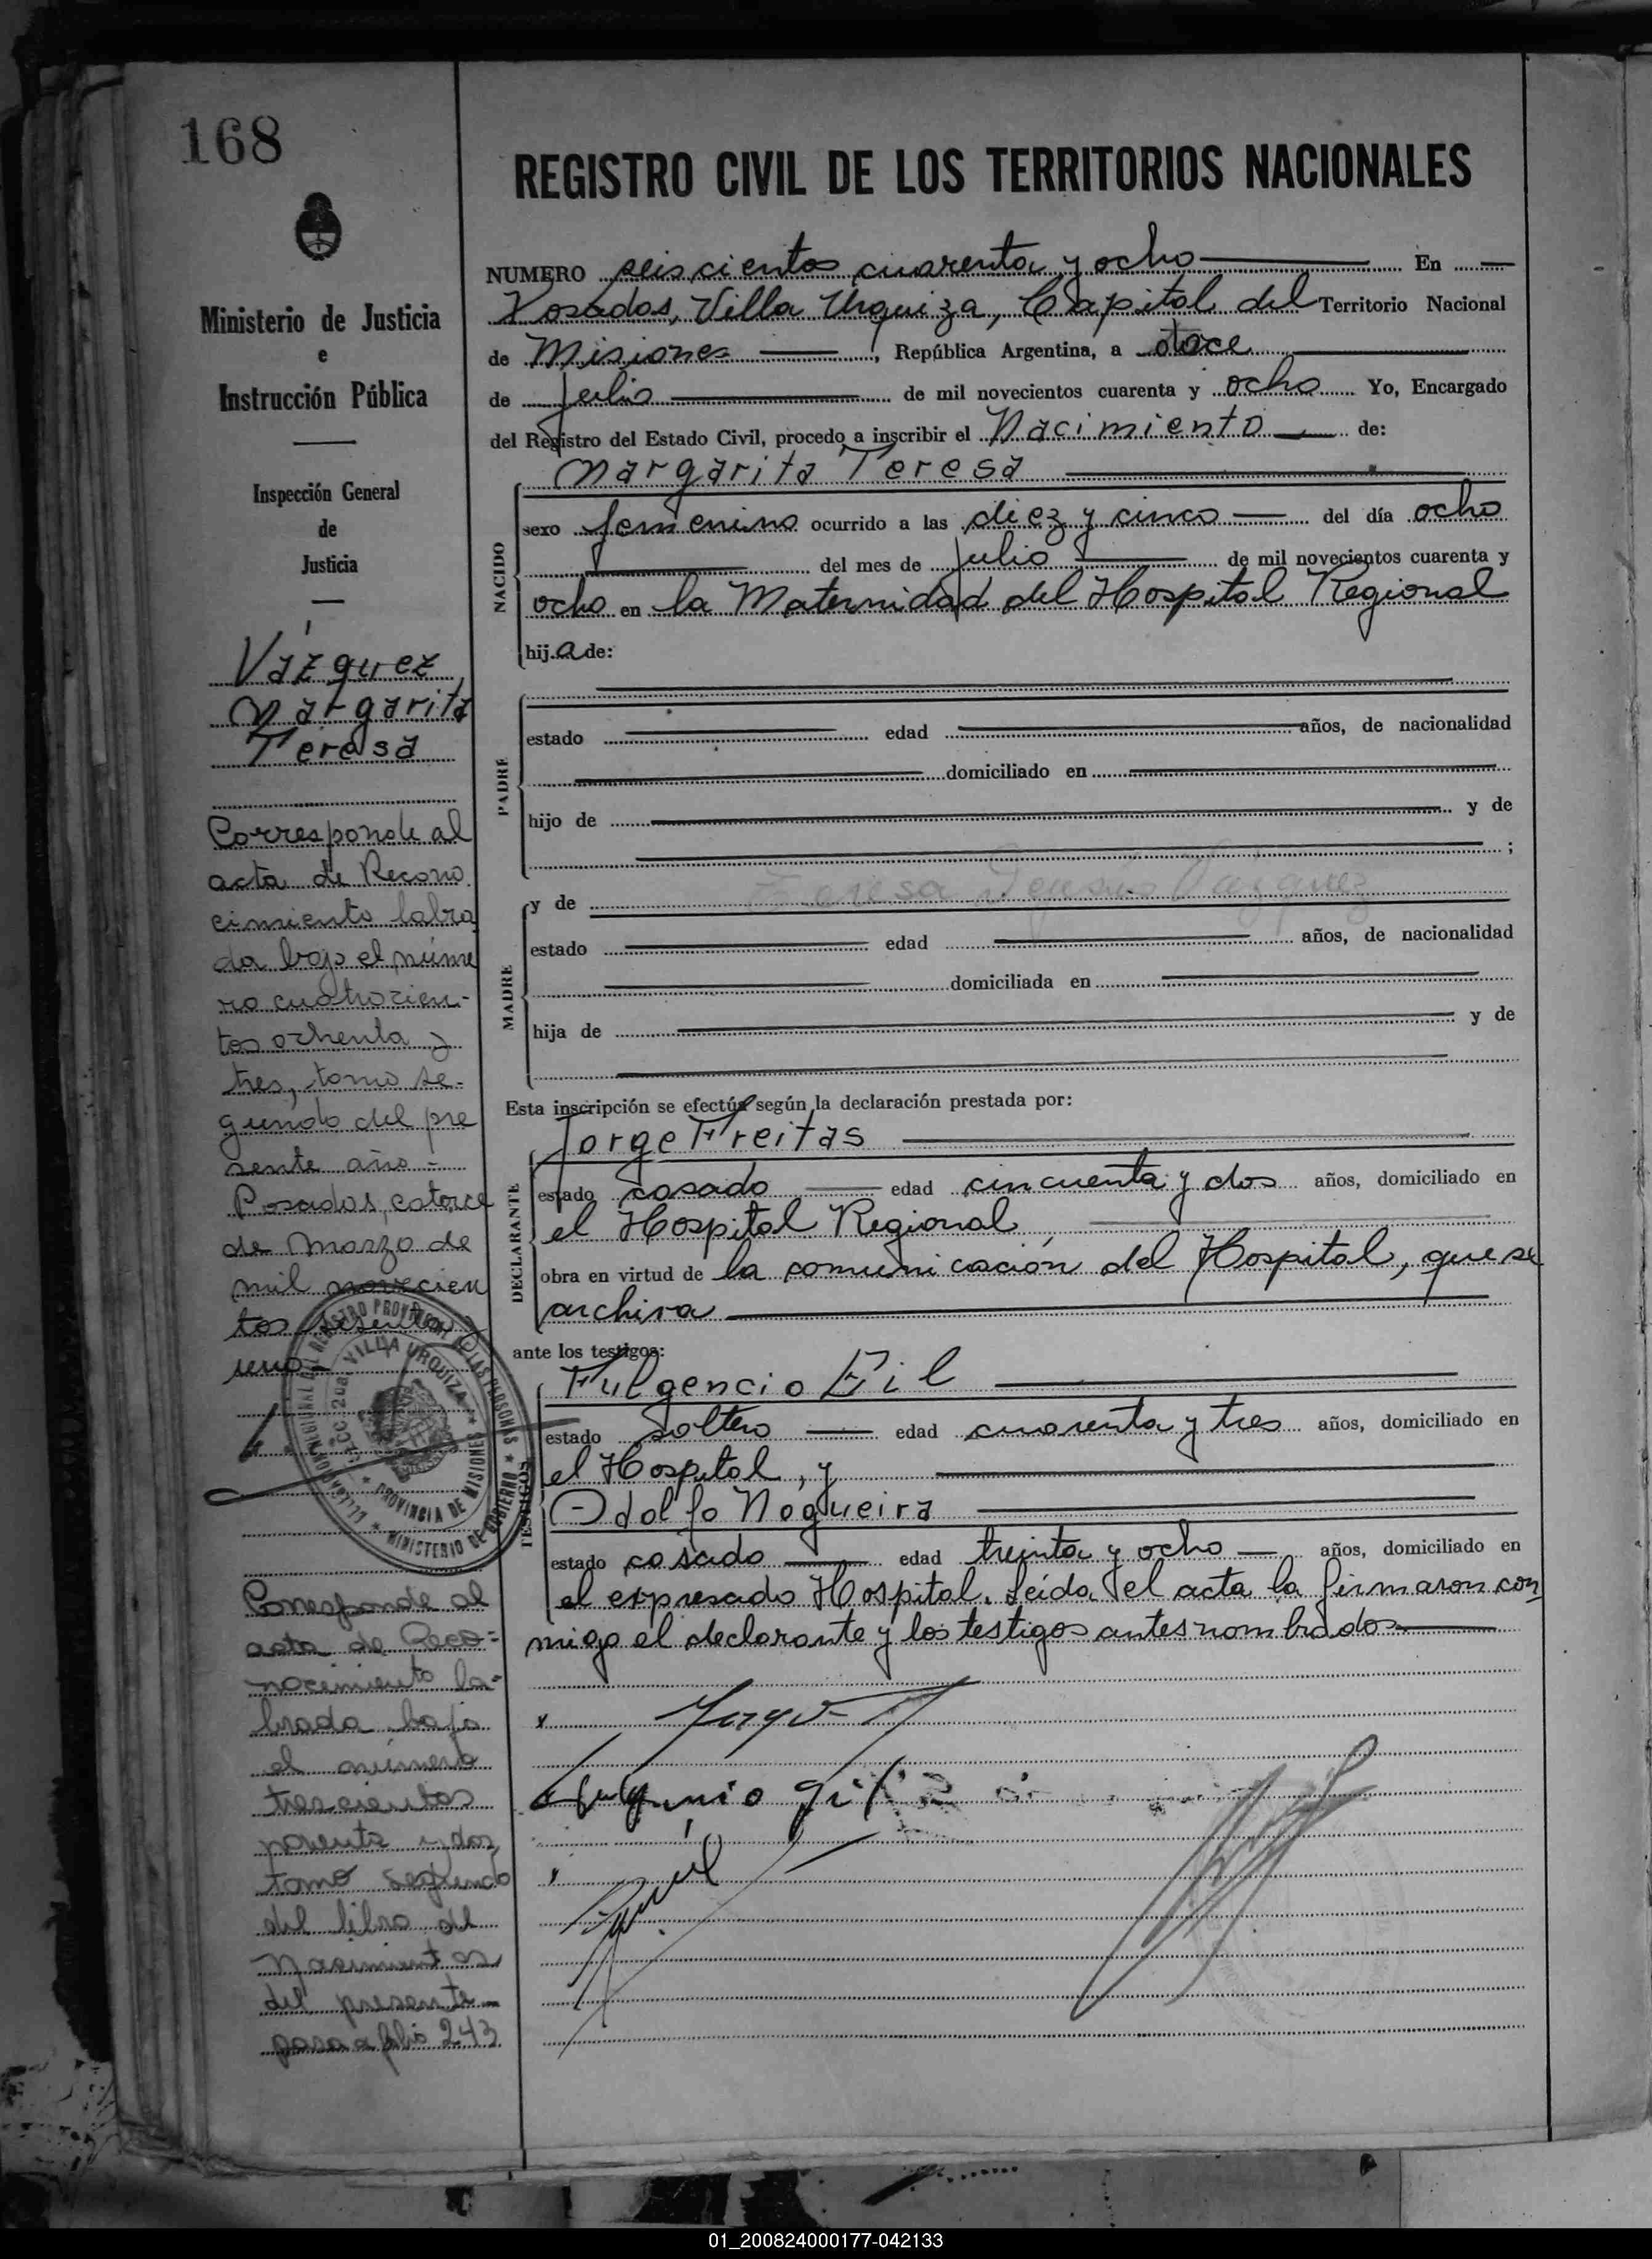 168
REGISTRO CIVIL DE LOS TERRITORIOS NACIONALES
Ministerio de Justicia
e
Instrucción Pública
Inspección General
de
Justicia
Vázquez,
Margarita
Teresa
Corresponde al
acta de Recono
cimiento labra
da bajo el núme
ro cuatrocien-
tos ochenta y
tres, tomo se-
gundo del pre
sente año.-
Posadas, catorce
de Marzo de
mil novecien
tos sesenta y
uno.-
Corresponde al
acta de Reco-
nocimiento la-
brada bajo
el número
trescientos
noventa y dos,
tomo segundo
del libro de
Nacimientos
del presente-
pasa a folio 243
NUMERO seiscientos cuarenta y ocho En
Posadas, Villa Urquiza, Capital del Territorio Nacional
de Misiones, República Argentina, a doce
de Julio de mil novecientos cuarenta y ocho Yo, Encargado
del Registro del Estado Civil, procedo a inscribir el Nacimiento de:
NACIDO
Margarita Teresa
sexo femenino ocurrido a las diez y cinco del día ocho
del mes de julio de mil novecientos cuarenta y
ocho en la Maternidad del Hospital Regional
hij.a de:
PADRE
estado edad años, de nacionalidad
domiciliado en
hijo de y de
;
MADRE
y de Teresa Vazquez
estado edad años, de nacionalidad
domiciliada en
hija de y de
Esta inscripción se efectúa según la declaración prestada por:
DECLARANTE
Jorge Freitas
estado casado edad cincuenta y dos años, domiciliado en
el Hospital Regional
obra en virtud de la comunicación del Hospital, que se
archiva
ante los testigos:
TESTIGOS
Fulgencio Gil
estado soltero edad cuarenta y tres años, domiciliado en
el Hospital, y
Odolfo Nogueira
estado casado edad treinta y ocho años, domiciliado en
el expresado Hospital. Leída el acta la firmaron con
migo el declarante y los testigos antes nombrados
VILLA URQUIZA
PROVINCIA DE MISIONES
MINISTERIO DE GOBIERNO
Fulgencio Gil
01_200824000177-042133